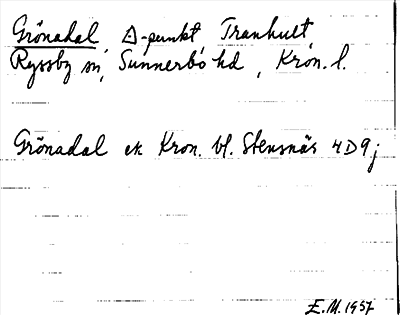 Grönadal △-punkt Tranhult,
Ryssby sn, Sunnerbo hd, Kron. l.
Grönadal ek Kron. bl. Stensnäs 4D9j
E.M. 1957